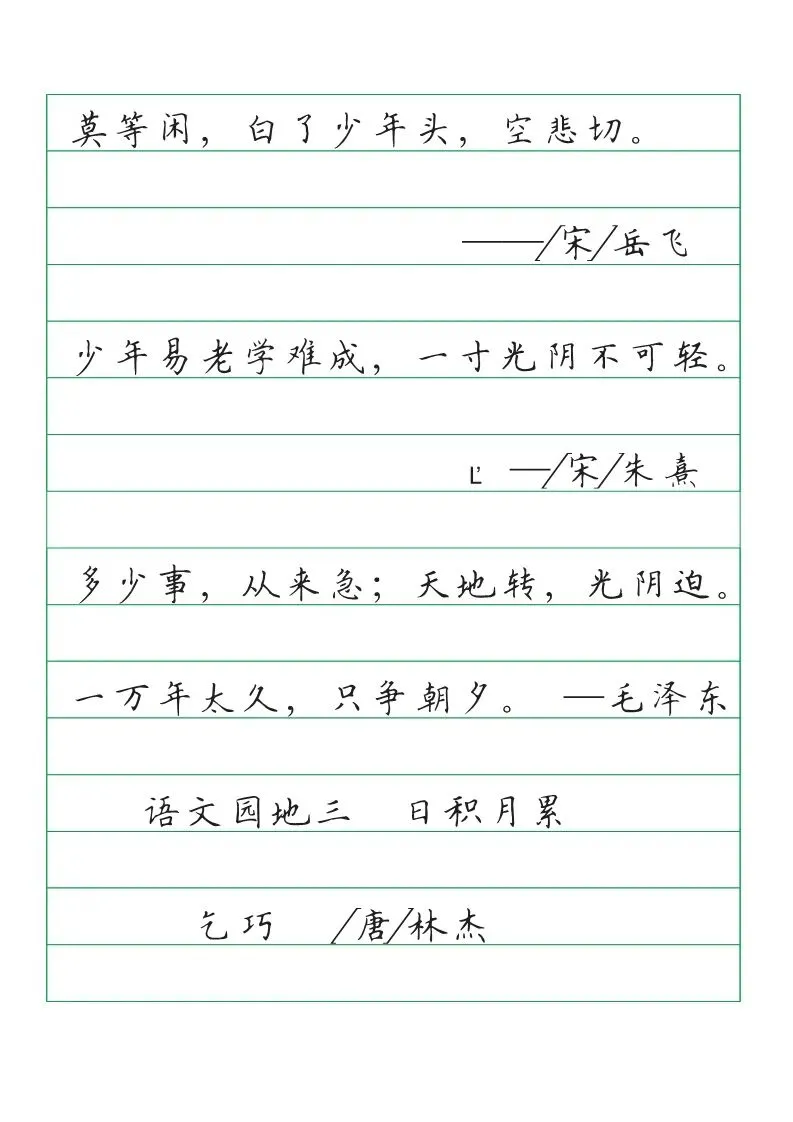 莫等闲，白了少年头，空悲切。
——/宋/岳飞
少年易老学难成，一寸光阴不可轻。
—/宋/朱熹
多少事，从来急；天地转，光阴迫。
一万年太久，只争朝夕。 —毛泽东
语文园地三 日积月累
乞巧 /唐/林杰